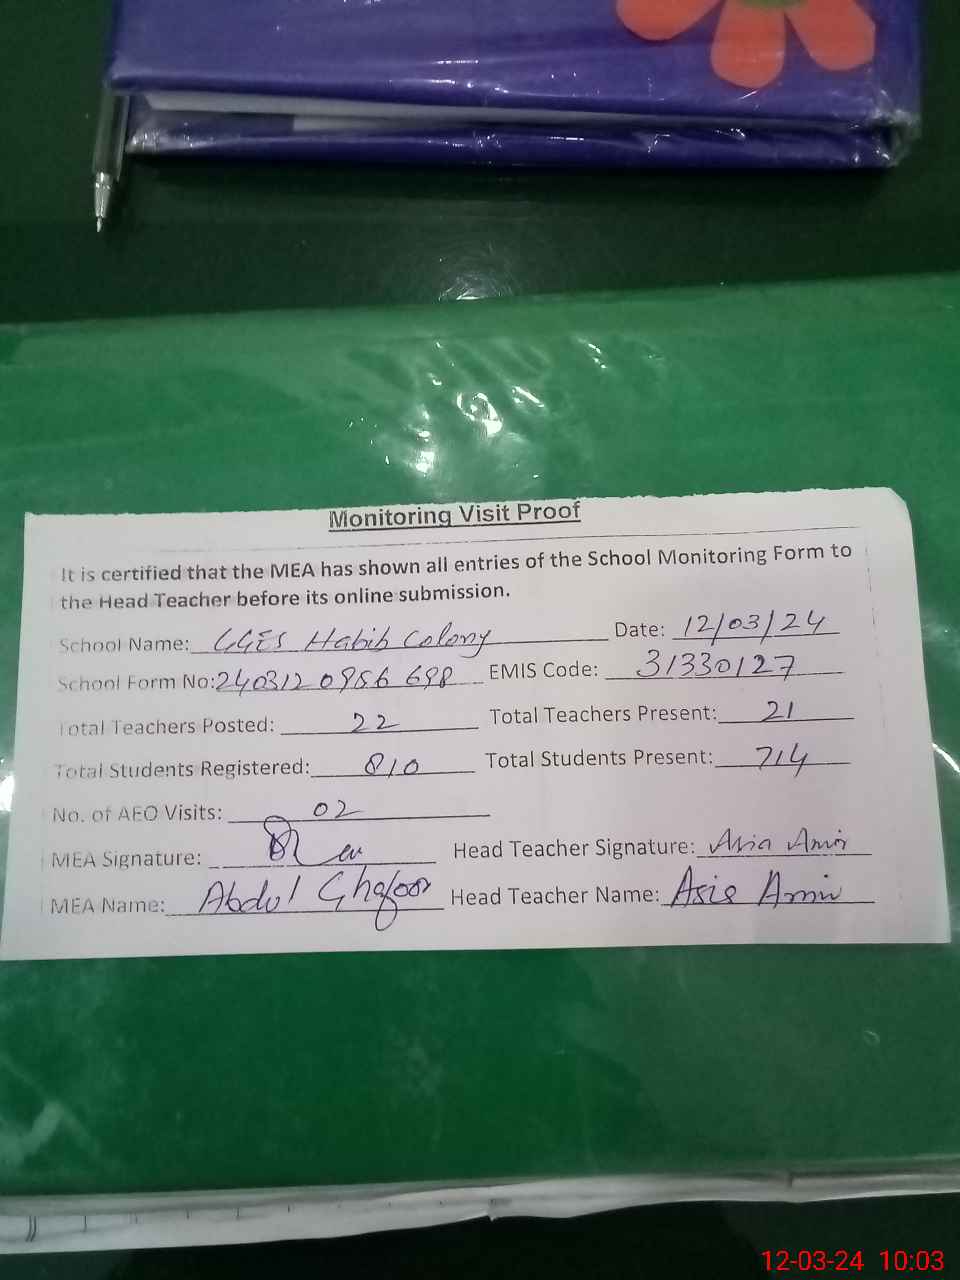 Monitoring Visit Proof
It is certified that the MEA has shown all entries of the School Monitoring Form to
the Head Teacher before its online submission.
School Name: GGES Habib Colony Date: 12/03/24
School Form No: 240312 0956 698 EMIS Code: 31330127
Total Teachers Posted: 22 Total Teachers Present: 21
Total Students Registered: 810 Total Students Present: 714
No. of AEO Visits: 02
MEA Signature: Head Teacher Signature: Asia Amir
MEA Name: Abdul Ghafoor Head Teacher Name: Asia Amir
12-03-24 10:03